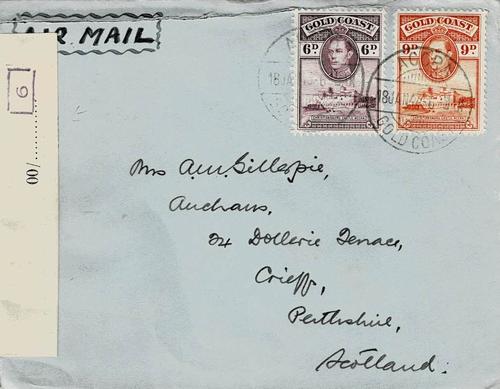 AIR MAIL
GOLD COAST
6D 6D
GOLD COAST
9D 9D
ACCRA
18 JA
GOLD COAST
6
00/
Mrs A.M. Gillespie,
Auchans,
24 Dollerie Terrace,
Crieff,
Perthshire,
Scotland.